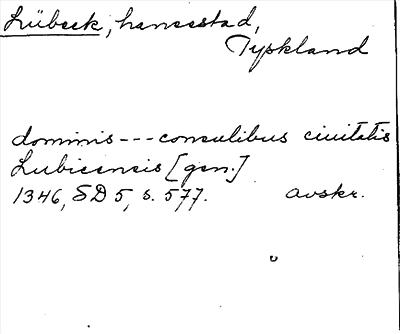 Lübeck, hansestad,
Tyskland
dominis --- consulibus ciuitatis
Lubicensis [gen.]
1346, SD 5, s. 577. avskr.